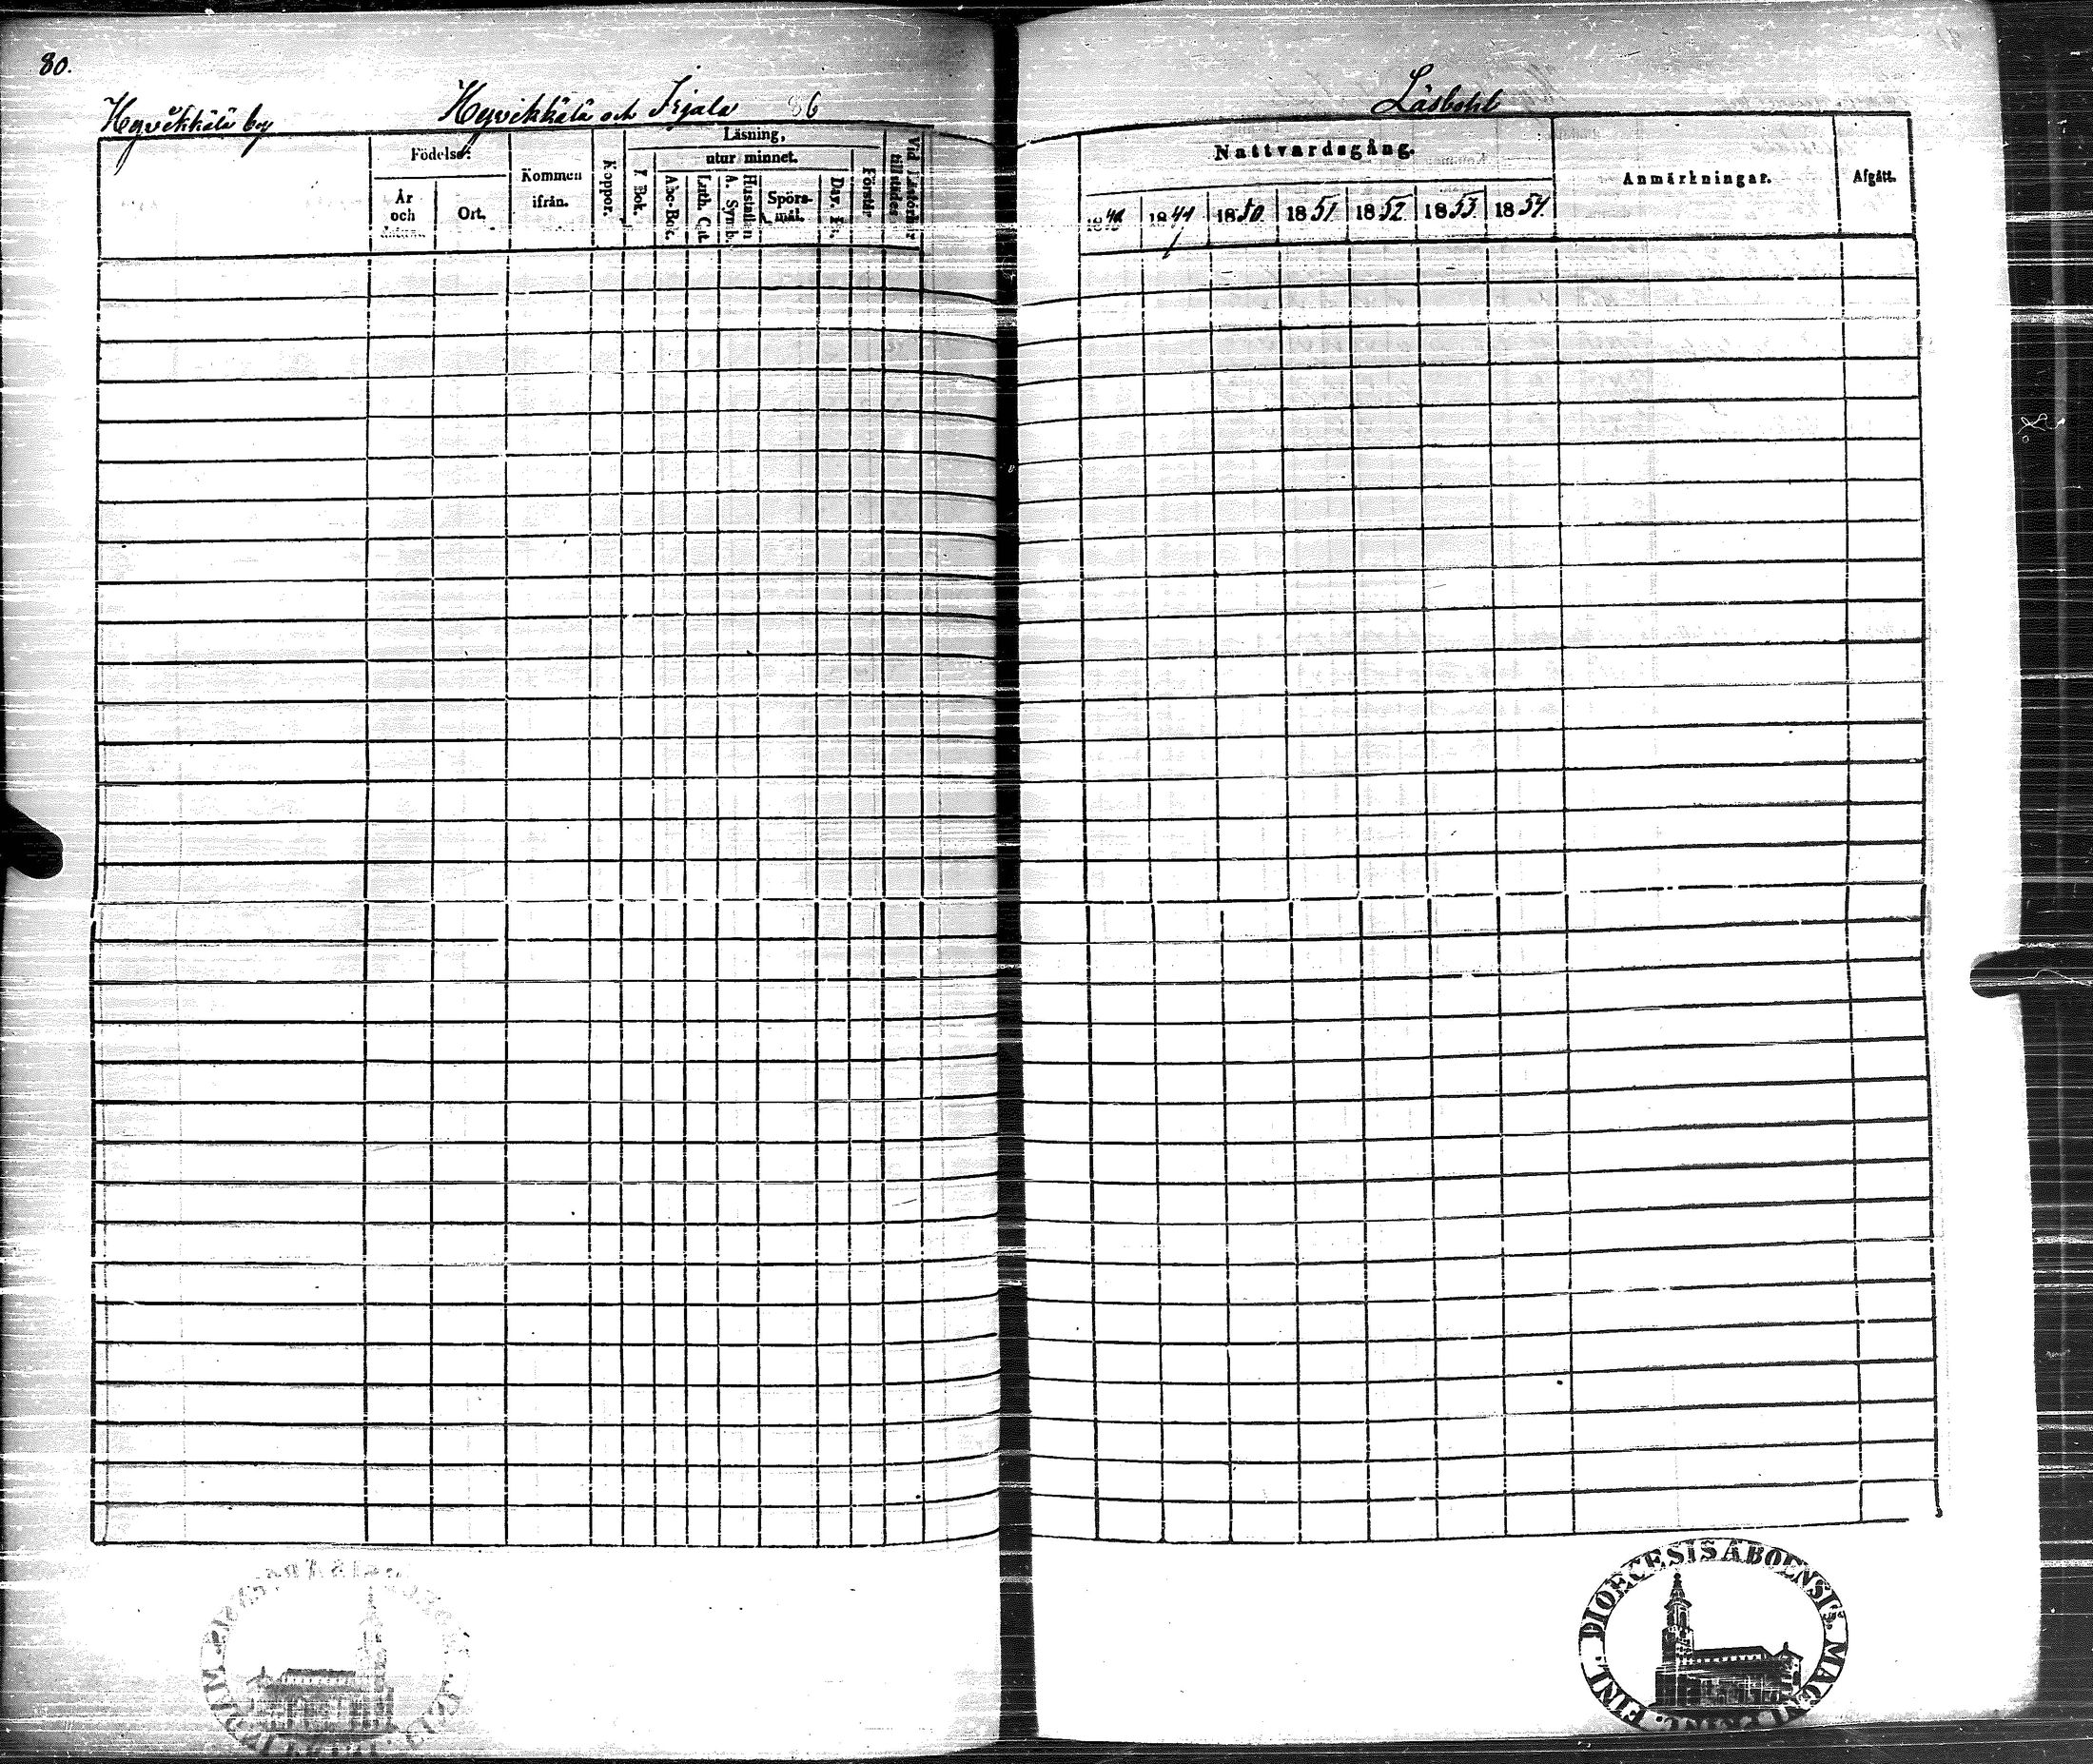 80.
Hyvikkälä by
Hyvikkälä och Irjala 86
Läsbohl
Födelse:
År och datum.
Ort.
Kommen ifrån.
Koppor.
Läsning,
utur minnet.
I Bok.
Abc-Bok.
Luth. Cat.
Hustaflan A. Symb.
Spörs-mål.
Dav. Ps.
Förstår
Vid Läsförhör tillstädes
Nattvardsgång.
1848 1849 1850 1851 1852 1853 1854
Anmärkningar.
Afgått.
DIOECESIS ABOENSIS. MAGNI PRINC. FINL.